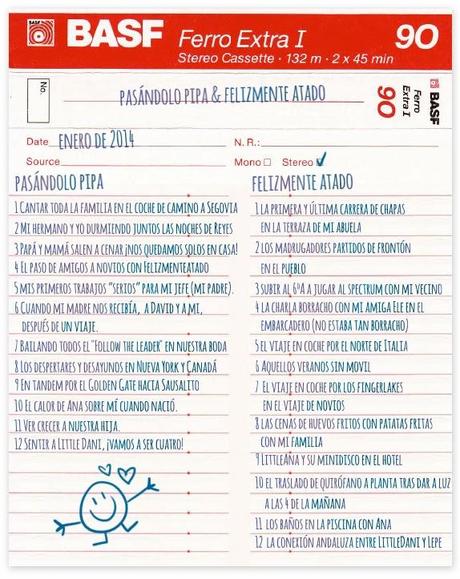 BASF Ferro Extra I 90
Stereo Cassette · 132 m · 2 x 45 min
No.
PASÁNDOLO PIPA & FELIZMENTE ATADO
BASF
Ferro
Extra I
90
Date ENERO DE 2014 N. R.:
Source Mono Stereo
PASÁNDOLO PIPA
1 CANTAR TODA LA FAMILIA EN EL COCHE DE CAMINO A SEGOVIA
2 MI HERMANO Y YO DURMIENDO JUNTOS LAS NOCHES DE REYES
3 PAPÁ Y MAMÁ SALEN A CENAR ¡NOS QUEDAMOS SOLOS EN CASA!
4 EL PASO DE AMIGOS A NOVIOS CON FELIZMENTEATADO
5 MIS PRIMEROS TRABAJOS "SERIOS" PARA MI JEFE (MI PADRE).
6 CUANDO MI MADRE NOS RECIBÍA, A DAVID Y A MI,
DESPUÉS DE UN VIAJE.
7 BAILANDO TODOS EL "FOLLOW THE LEADER" EN NUESTRA BODA
8 LOS DESPERTARES Y DESAYUNOS EN NUEVA YORK Y CANADÁ
9 EN TANDEM POR EL GOLDEN GATE HACIA SAUSALITO
10 EL CALOR DE ANA SOBRE MÍ CUANDO NACIÓ.
11 VER CRECER A NUESTRA HIJA.
12 SENTIR A LITTLE DANI, ¡VAMOS A SER CUATRO!
FELIZMENTE ATADO
1 LA PRIMERA Y ÚLTIMA CARRERA DE CHAPAS
EN LA TERRAZA DE MI ABUELA
2 LOS MADRUGADORES PARTIDOS DE FRONTÓN
EN EL PUEBLO
3 SUBIR AL 6ºA A JUGAR AL SPECTRUM CON MI VECINO
4 LA CHARLA BORRACHO CON MI AMIGA ELE EN EL
EMBARCADERO (NO ESTABA TAN BORRACHO)
5 EL VIAJE EN COCHE POR EL NORTE DE ITALIA
6 AQUELLOS VERANOS SIN MOVIL
7 EL VIAJE EN COCHE POR LOS FINGERLAKES
EN EL VIAJE DE NOVIOS
8 LAS CENAS DE HUEVOS FRITOS CON PATATAS FRITAS
CON MI FAMILIA
9 LITTLEANA Y SU MINIDISCO EN EL HOTEL
10 EL TRASLADO DE QUIRÓFANO A PLANTA TRAS DAR A LUZ
A LAS 4 DE LA MAÑANA
11 LOS BAÑOS EN LA PISCINA CON ANA
12 LA CONEXIÓN ANDALUZA ENTRE LITTLEDANI Y LEPE